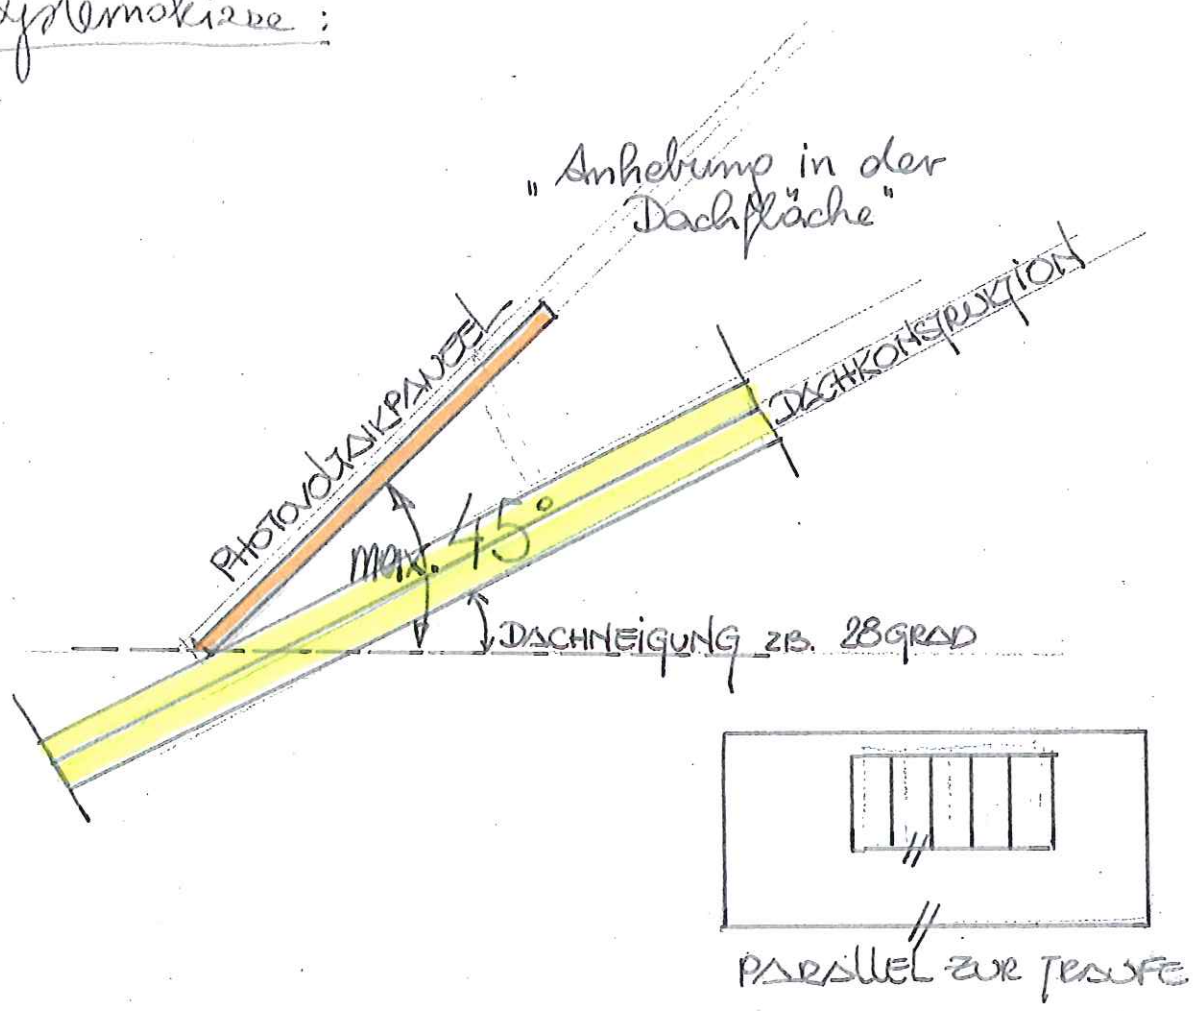 Systemskizze :
„Anhebung in der
Dachfläche"
PHOTOVOLTAIKPANEEL
DACHKONSTRUKTION
max. 45°
DACHNEIGUNG ZB. 28 GRAD
PARALLEL ZUR TRAUFE